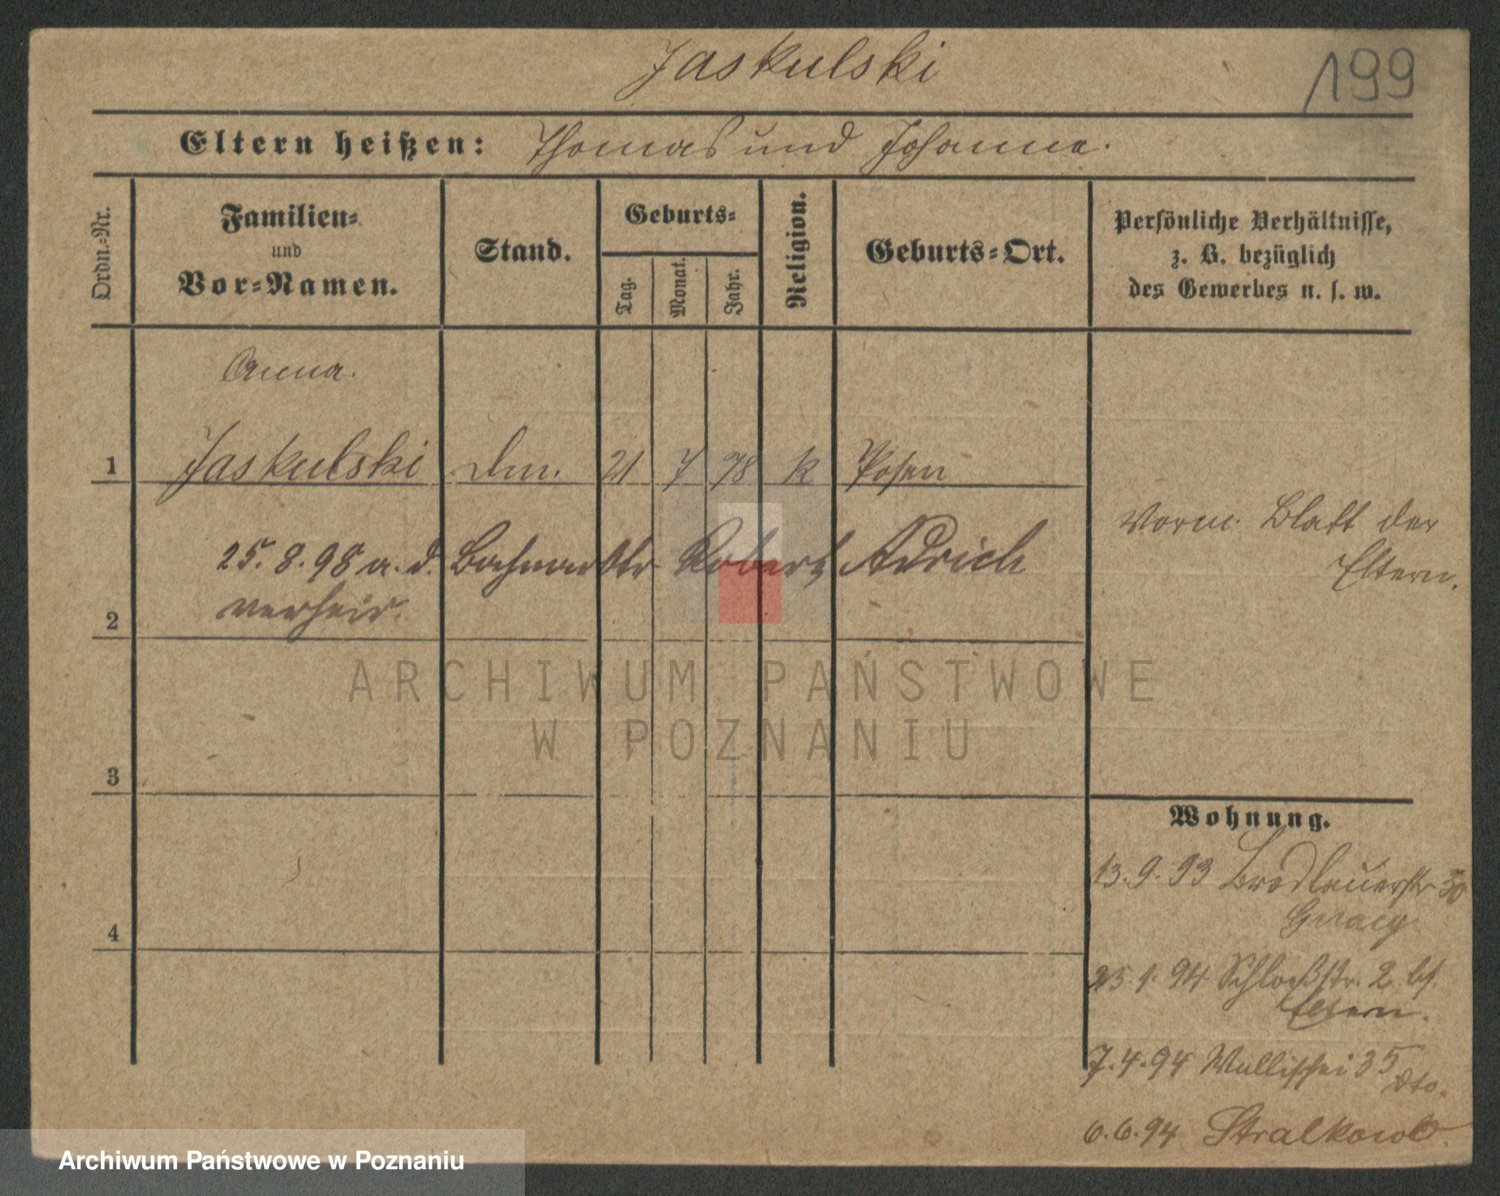 Jaskulski
199
Eltern heißen: Thomas und Johanna.
Ordn.=Nr.
Familien=
und
Vor=Namen.
Stand.
Geburts=
Tag.
Monat.
Jahr.
Religion.
Geburts=Ort.
Persönliche Verhältnisse,
z. B. bezüglich
des Gewerbes u. s. w.
Anna.
1 Jaskulski Dm. 21 7 78 k Posen
Vorm. Blatt der
Eltern.
25. 8. 98 a. d. Robert Adrich
verheir.
2
3
4
Wohnung.
13. 9. 93 30
25. 1. 94 Schloßstr. 2 bs.
Eltern.
7. 4. 94 Wallischei 35
dto.
6. 6. 94 Stralkowo.
ARCHIWUM PAŃSTWOWE
W POZNANIU
Archiwum Państwowe w Poznaniu